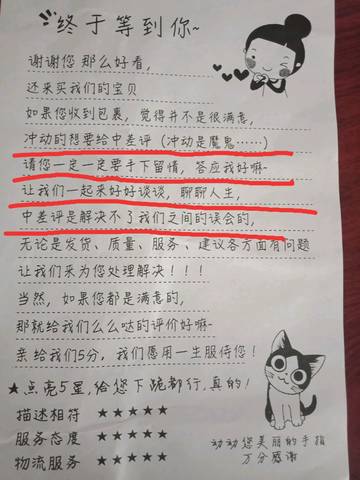 终于等到你~
谢谢您 那么好看，
还来买我们的宝贝
如果您收到包裹，觉得并不是很满意，
冲动的想要给中差评（冲动是魔鬼……）
请您一定一定要手下留情，答应我好嘛~
让我们一起来好好谈谈，聊聊人生，
中差评是解决不了我们之间的误会的，
无论是发货、质量、服务、建议各方面有问题
让我们来为您处理解决！！！
当然，如果您都是满意的，
那就给我们么么哒的评价好嘛~
亲给我们5分，我们愿用一生服侍您！
★点亮5星，给您下跪都行，真的！
描述相符 ★★★★★
服务态度 ★★★★★
物流服务 ★★★★★
动动您美丽的手指
万分感谢